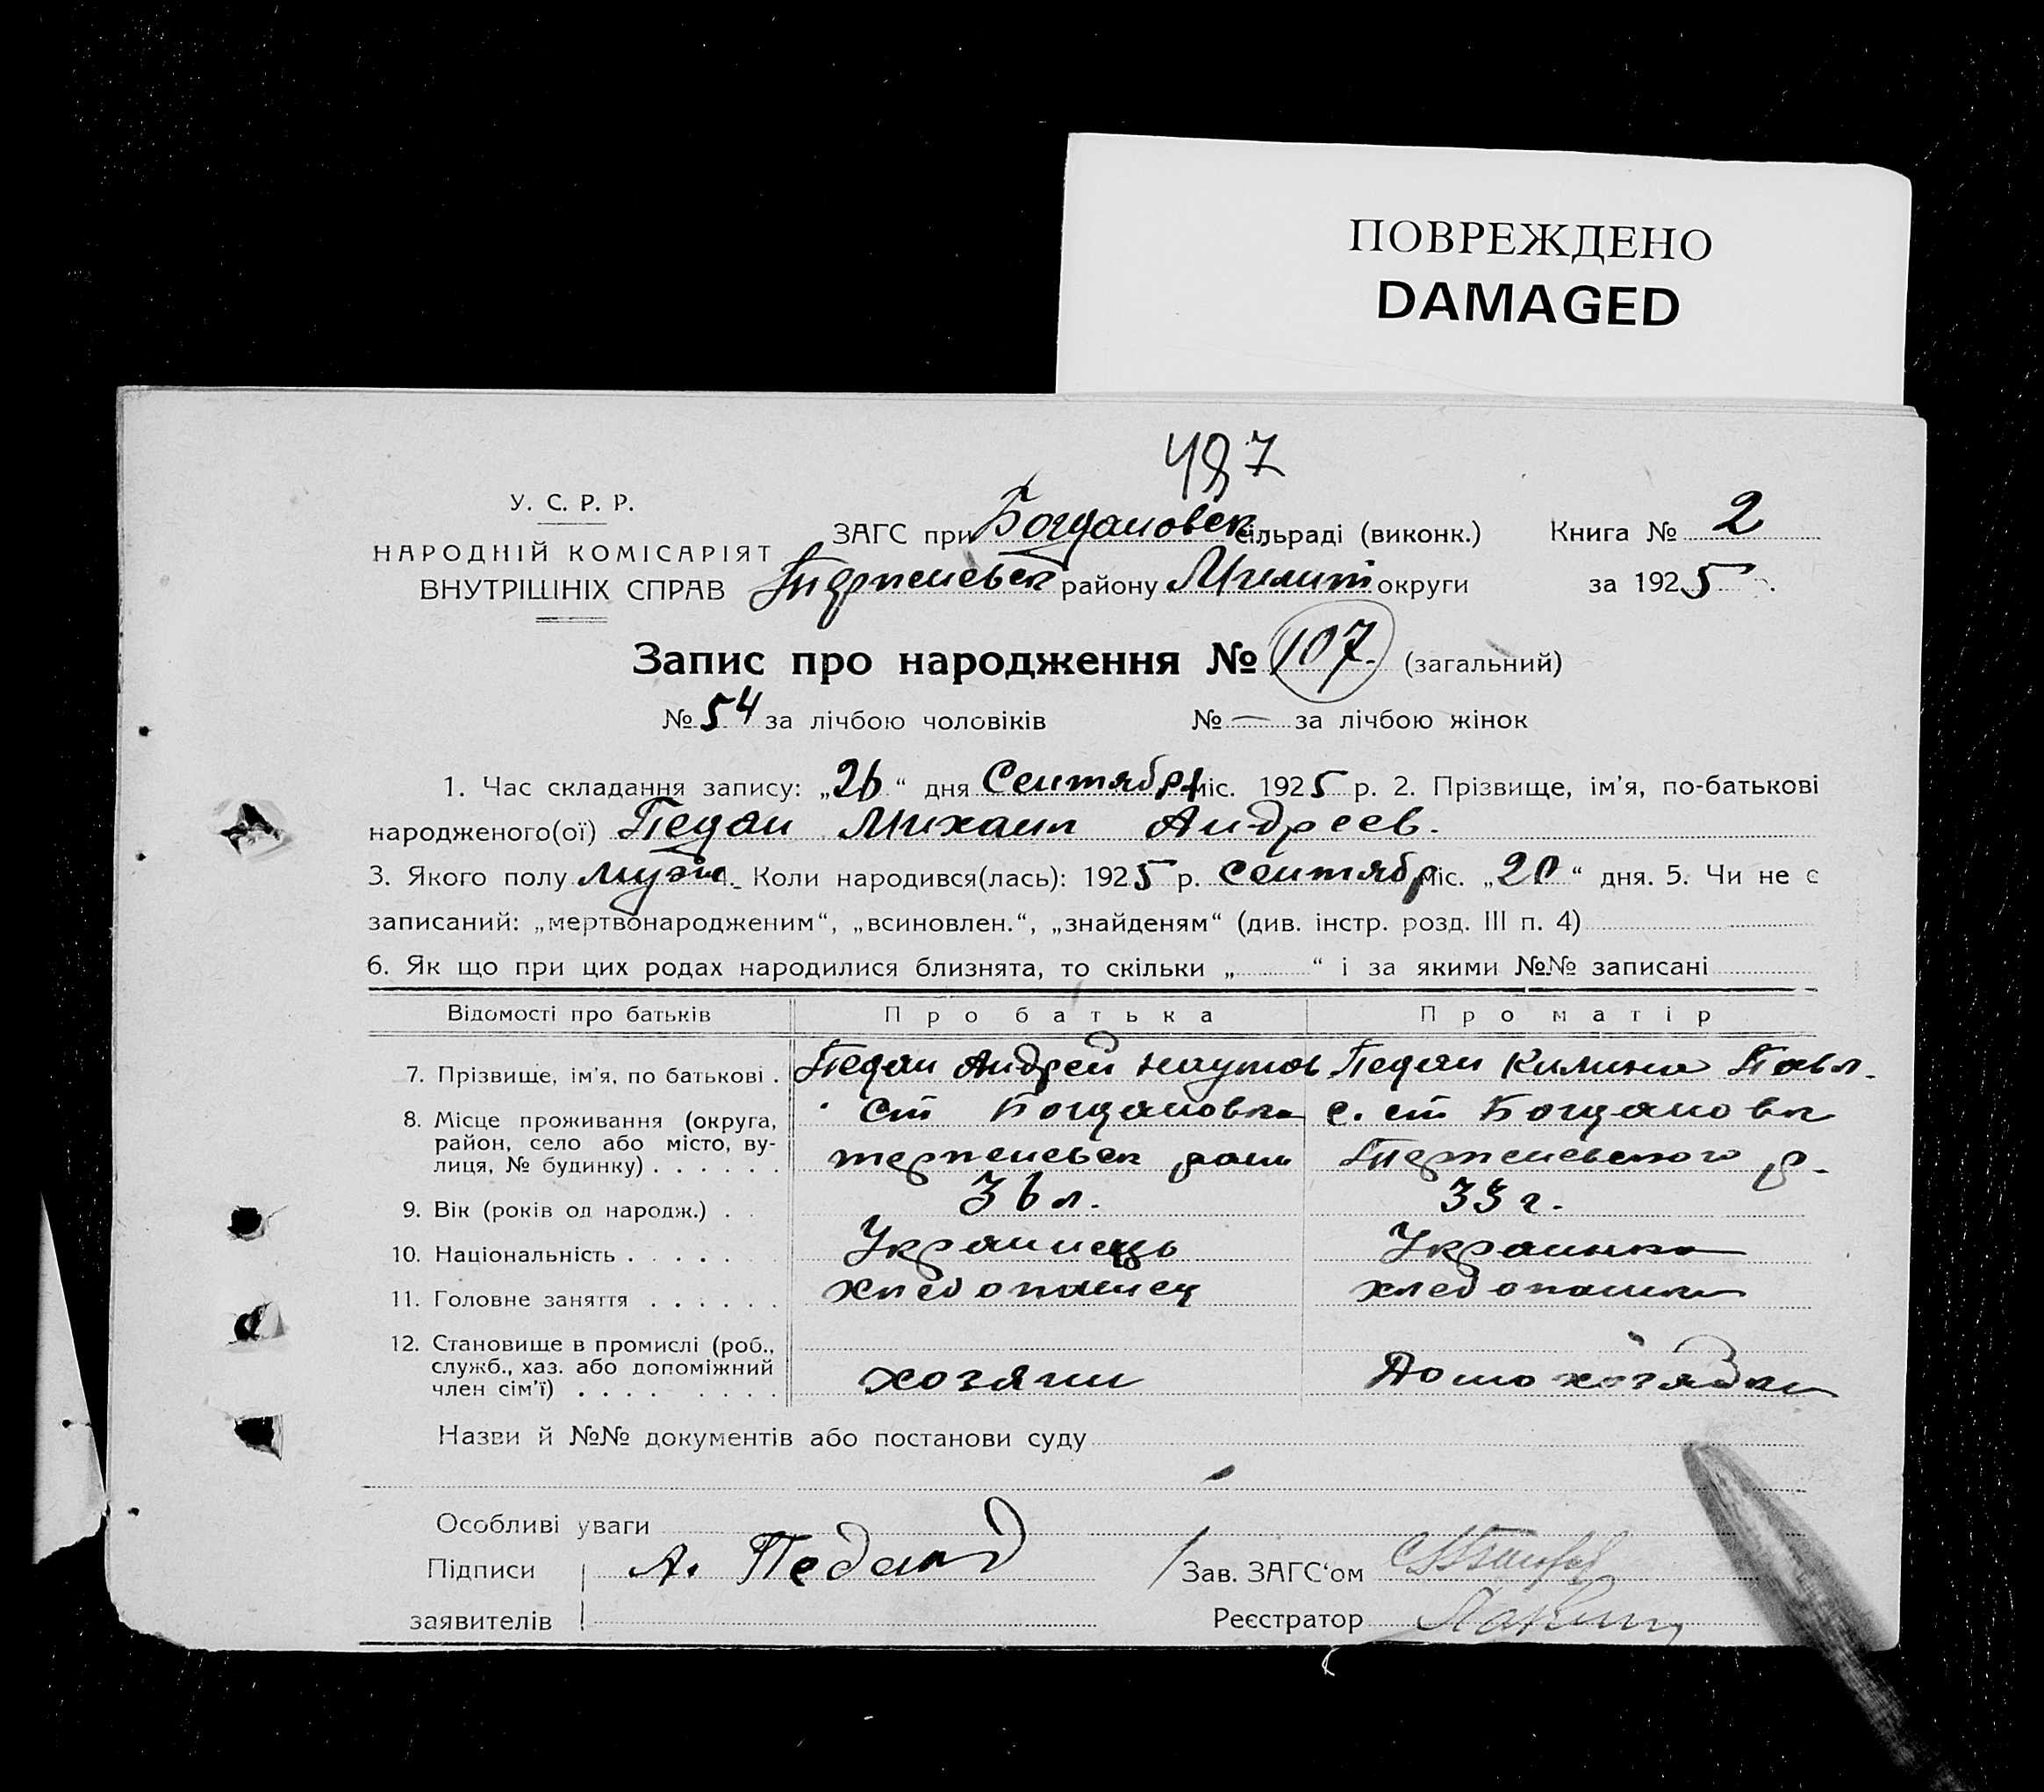 ПОВРЕЖДЕНО
DAMAGED
487
У. С. Р. Р.
НАРОДНІЙ КОМІСАРІЯТ
ВНУТРІШНІХ СПРАВ
ЗАГС при Богдановск. сільраді (виконк.) Книга № 2
Терпеньевск району Мелит округи за 1925
Запис про народження № 107. (загальний)
№ 54 за лічбою чоловіків № — за лічбою жінок
1. Час складання запису: „26“ дня Сентября міс. 1925 р. 2. Прізвище, ім'я, по-батькові
народженого(ої) Педан Михаил Андреев.
3. Якого полу муж. Коли народився(лась): 1925 р. Сентябр міс. „20“ дня. 5. Чи не є
записаний: „мертвонародженим“, „всиновлен.“, „знайденям“ (див. інстр. розд. III п. 4)
6. Як що при цих родах народилися близнята, то скільки „ “ і за якими №№ записані
Відомості про батьків Про батька Про матір
7. Прізвище, ім'я, по батькові . Педан Андрей Наумов Педан Килина Павл.
8. Місце проживання (округа, Ст Богдановка с. ст Богдановк
район, село або місто, ву-
лиця, № будинку) . . . . . . терпеньевск раион Терпеньевского р.
9. Вік (років од народж.) . . 36 л. 33 г.
10. Національність . . . . . Украинець Украинка
11. Головне заняття . . . . . . хлебопашец хлебопашка
12. Становище в промислі (роб.,
служб., хаз. або допоміжний
член сім'ї) . . . . . . . . хозяин Домохозяйка
Назви й №№ документів або постанови суду
Особливі уваги
Підписи А. Педан Зав. ЗАГС‘ом
заявителів Реєстратор